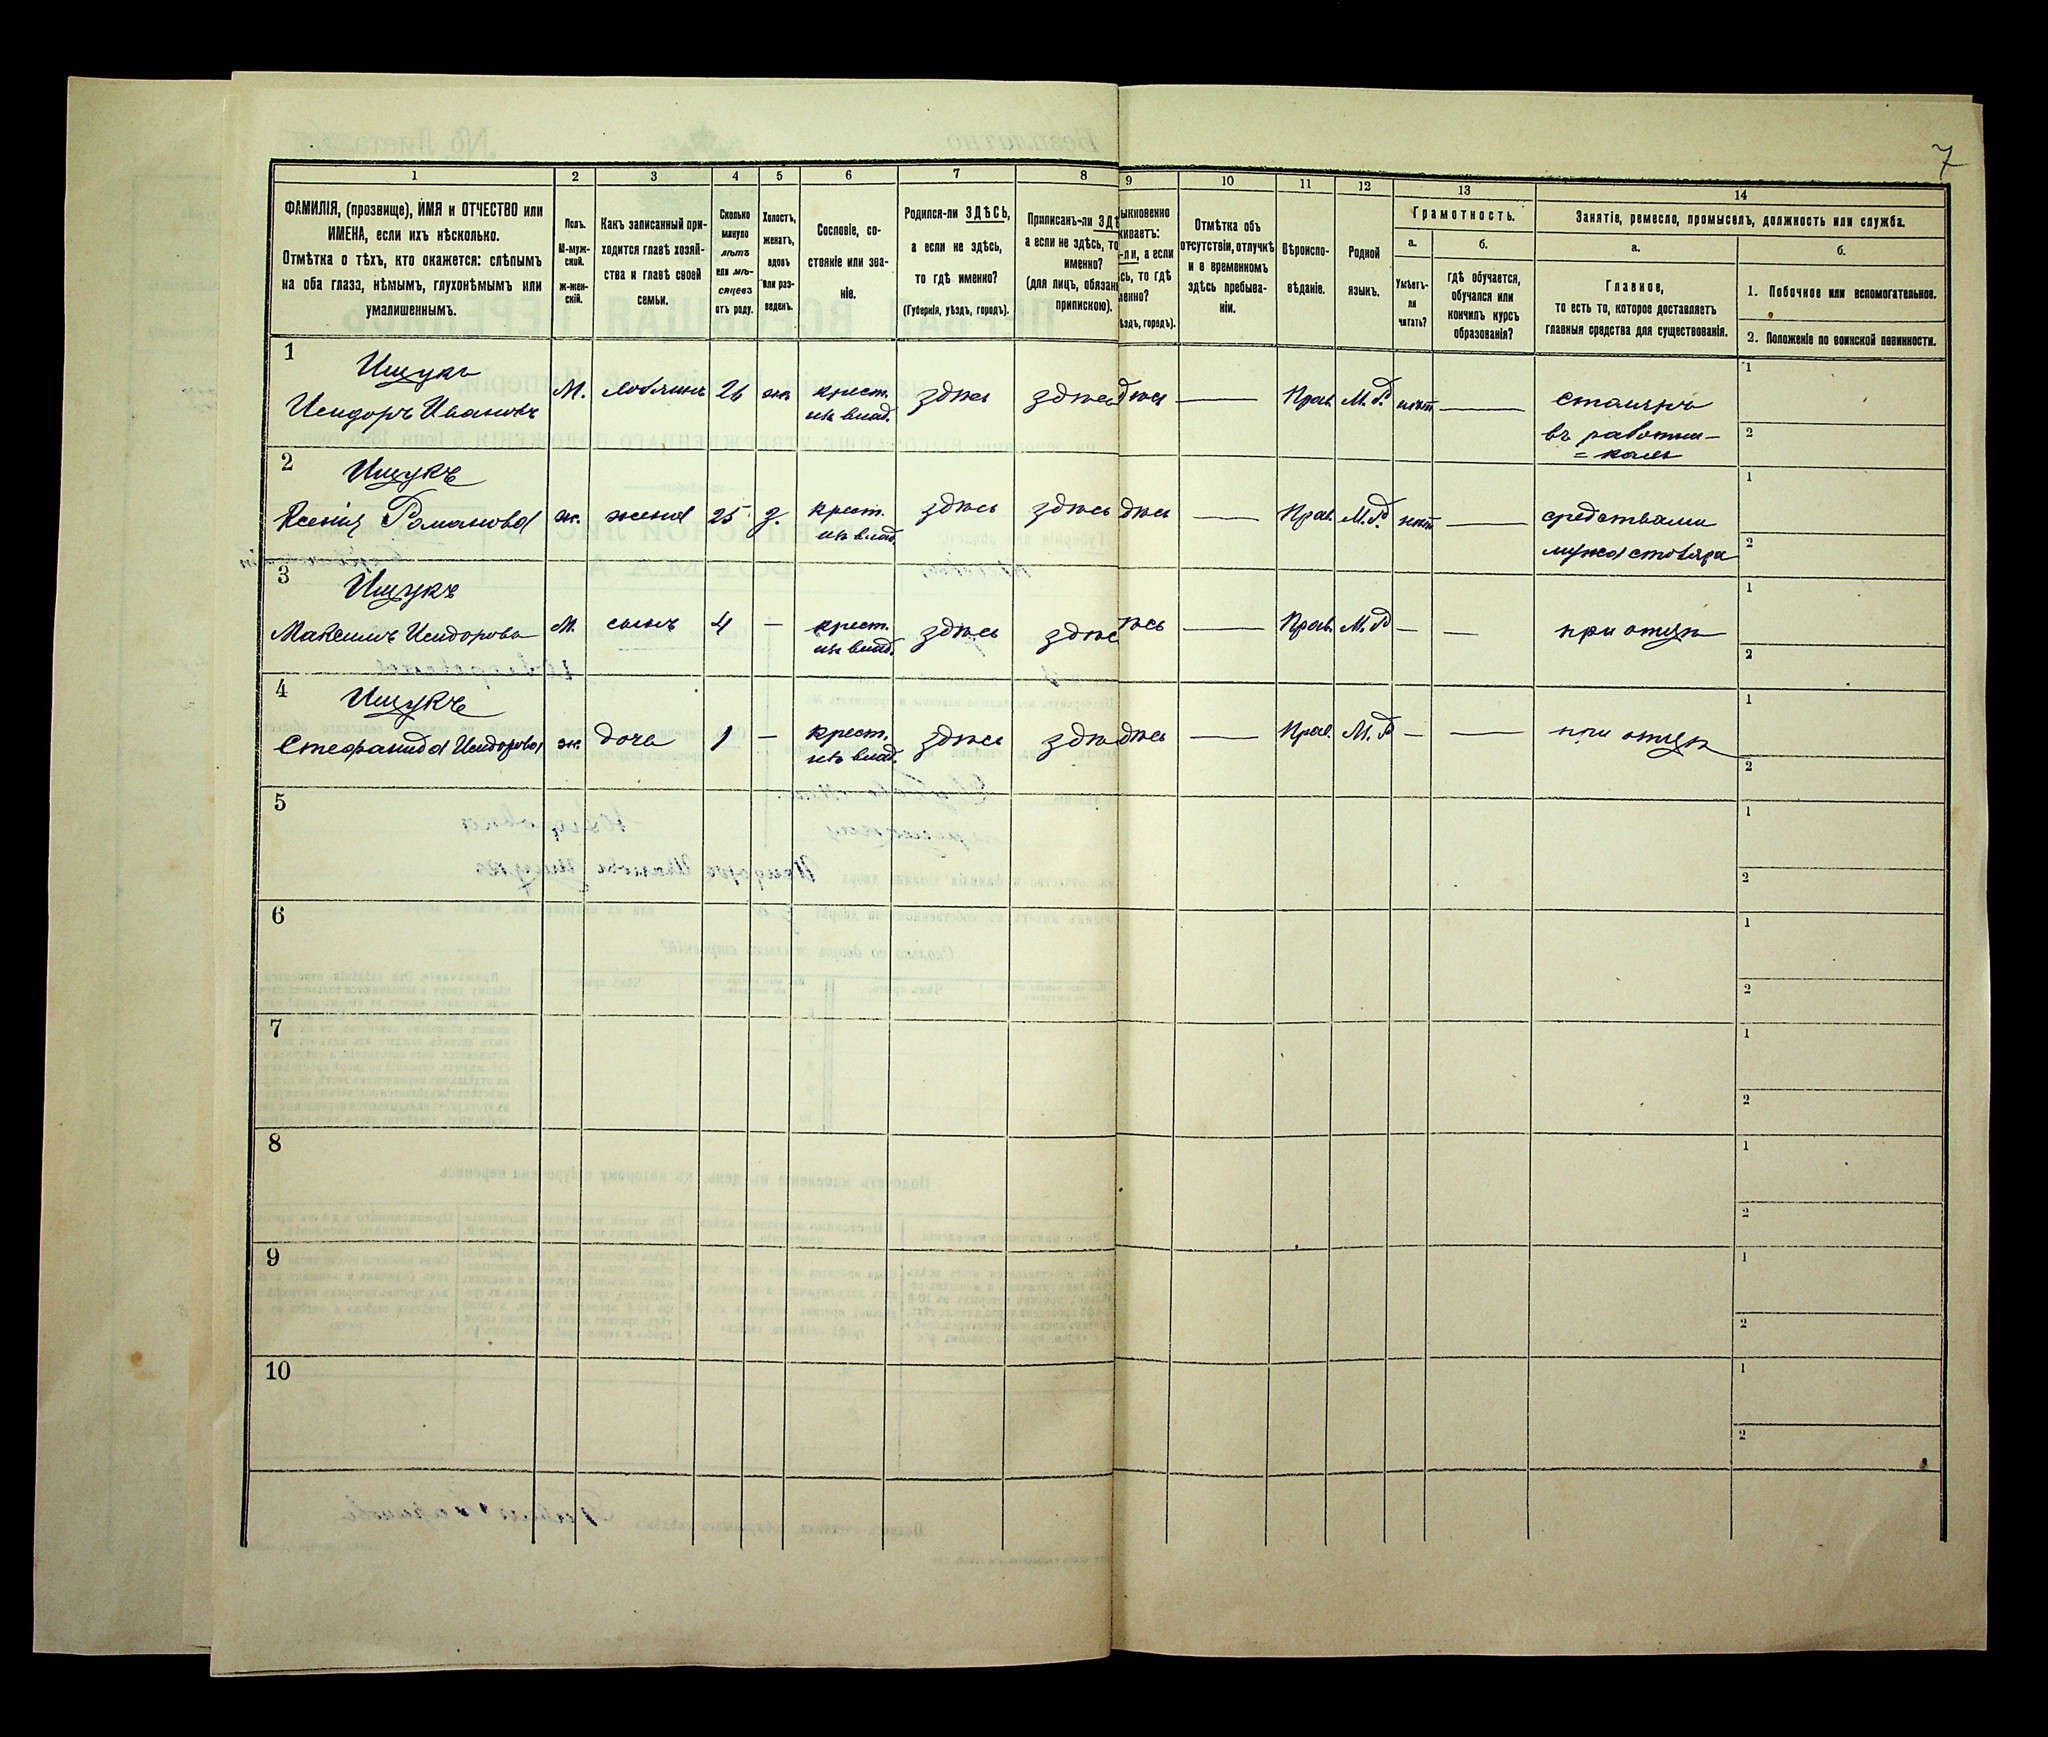 7
1 2 3 4 5 6 7 8 9 10 11 12 13 14
ФАМИЛІЯ, (прозвище), ИМЯ и ОТЧЕСТВО или
ИМЕНА, если ихъ нѣсколько.
Отмѣтка о тѣхъ, кто окажется: слѣпымъ
на оба глаза, нѣмымъ, глухонѣмымъ или
умалишеннымъ.
Полъ.
М-муж-
ской.
ж-жен-
скій.
Какъ записанный при-
ходится главѣ хозяй-
ства и главѣ своей
семьи.
Сколько
минуло
лѣтъ
или мѣ-
сяцевъ
отъ роду.
Холостъ,
женатъ,
вдовъ
или раз-
веденъ.
Сословіе, со-
стояніе или зва-
ніе.
Родился-ли ЗДѢСЬ,
а если не здѣсь,
то гдѣ именно?
(Губернія, уѣздъ, городъ).
Приписанъ-ли ЗДѢ
а если не здѣсь, то
именно?
(для лицъ, обязан
припискою).
ыкновенно
живаетъ:
-ли, а если
сь, то гдѣ
менно?
ѣздъ, городъ).
Отмѣтка объ
отсутствіи, отлучкѣ
и о временномъ
здѣсь пребыва-
ніи.
Вѣроиспо-
вѣданіе.
Родной
языкъ.
Грамотность.
а.
Умѣетъ-
ли
читать?
б.
гдѣ обучается,
обучался или
кончилъ курсъ
образованія?
Занятіе, ремесло, промыселъ, должность или служба.
а.
Главное,
то есть то, которое доставляетъ
главныя средства для существованія.
б.
1. Побочное или вспомогательное.
2. Положеніе по воинской повинности.
1 Ищукъ
Исидоръ Ивановъ М. хозяинъ 26 жен. крест. здѣсь здѣсь дѣсь — Прав. М.Р. нѣтъ — столяръ 1
изъ влад. въ работни- 2
= кахъ
2 Ищукъ
Ксенія Романова ж. жена 25 з. крест. здѣсь здѣсь дѣсь — Прав. М.Р. нѣтъ — средствами 1
изъ влад. мужа столяра 2
3 Ищукъ
Максимъ Исидоровъ М. сынъ 4 — крест. здѣсь здѣс ѣсь — Прав. М.Р. — — при отцѣ 1
изъ влад. 2
4 Ищукъ
Стефанида Исидорова ж. дочь 1 — крест. здѣсь здѣ дѣсь — Прав. М.Р. — — при отцѣ 1
изъ влад. 2
5 1
2
6 1
2
7 1
2
8 1
2
9 1
2
10 1
2